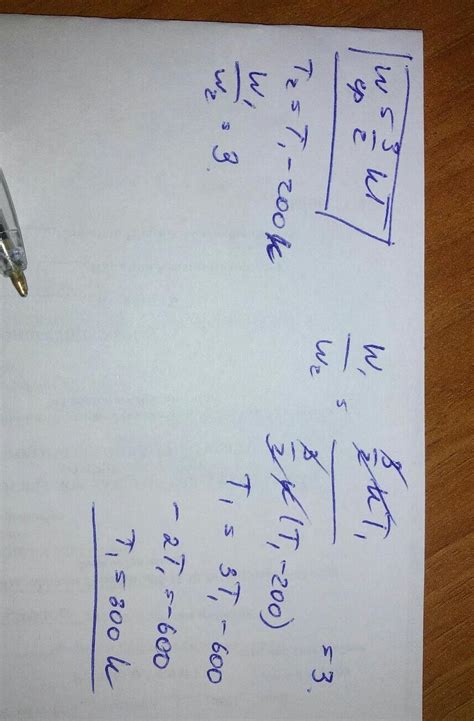 W ср = 3/2 kT
T₂ = T₁ - 200k
W₁/W₂ = 3.
W₁/W₂ = (3/2 kT₁)/(3/2 k(T₁-200)) = 3.
T₁ = 3T₁ - 600
-2T₁ = -600
T₁ = 300 k